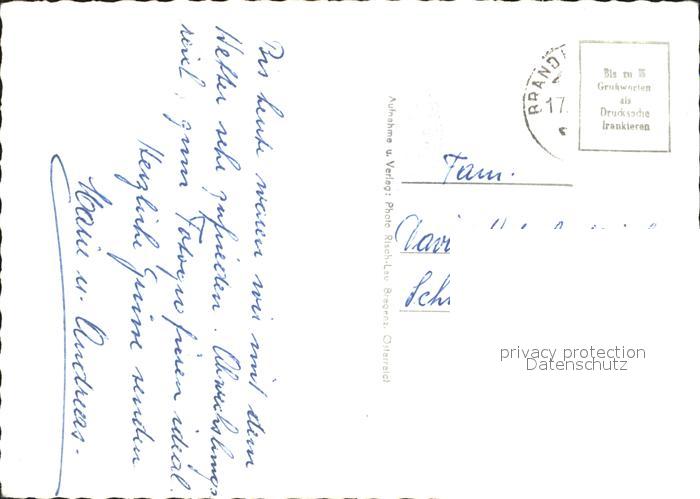 Bis heute waren wir mit dem
Wetter sehr zufrieden. Abwechslungs
reich, zum Fotografieren ideal.
Herzliche Grüsse senden
u. Andreas.
Aufnahme u. Verlag: Photo Risch-Lau Bregenz, Österreich
BRAND
17.
Bis zu 5
Grußworten
als
Drucksache
frankieren
Fam.
privacy protection
Datenschutz